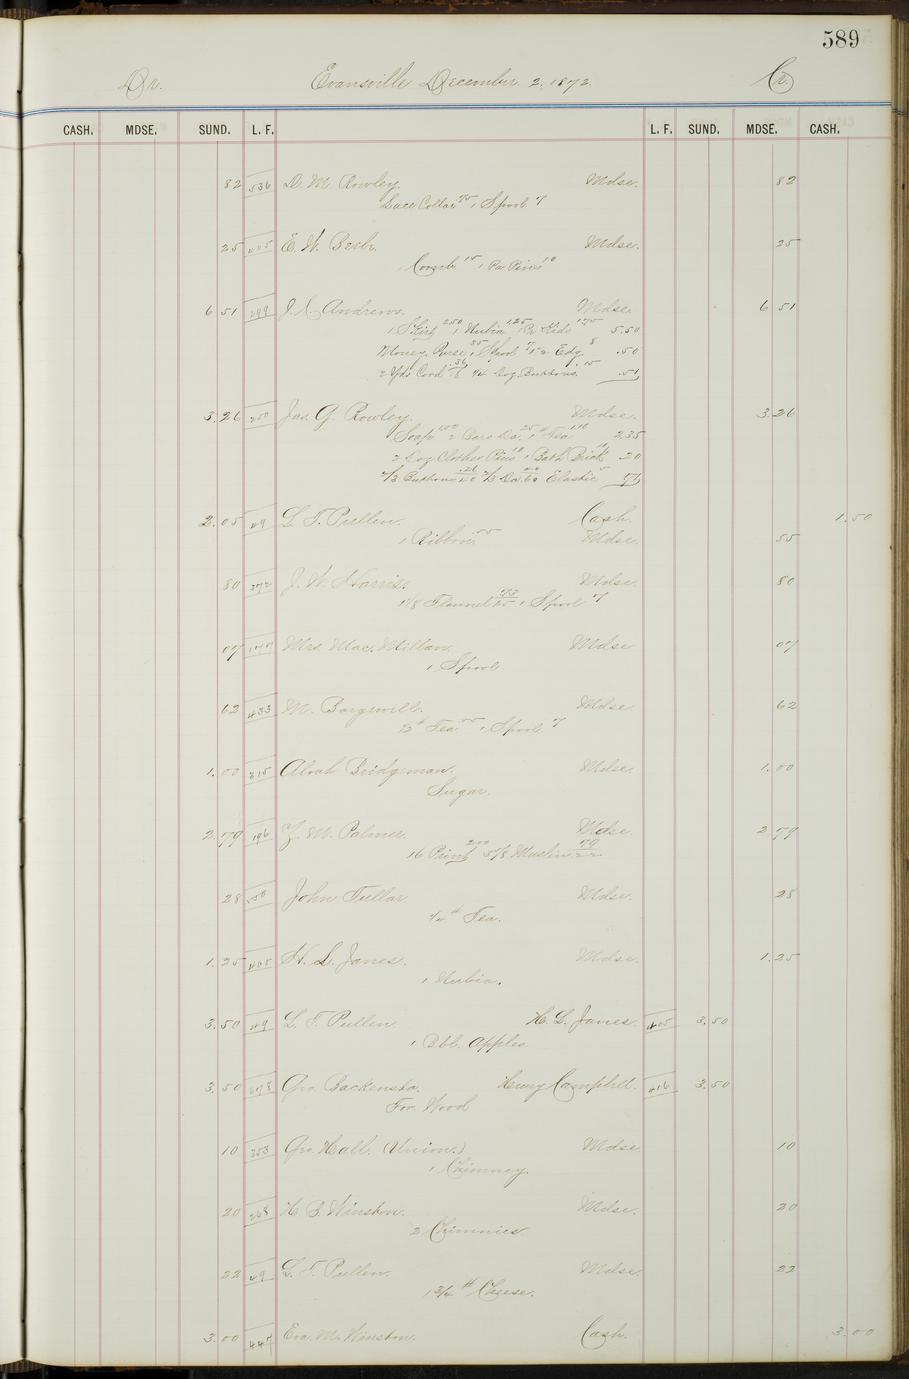 589
Dr. Evansville December 2, 1872. Cr.
CASH. MDSE. SUND. L. F. L. F. SUND. MDSE. CASH.
82 536 D. M. Rowley. Mdse. 82
Lace Collar 75 1 Spool 7
25 405 E. W. Beebe Mdse. 25
1 Comb 15 1 Pa Pins 10
6 51 249 J. C. Andrews. Mdse. 6 51
1 Skirt 250 1 Nubia 125 1 Pr Kids 175 5.50
Money Purse 35 1 Spool 7 1 Edg. 8 .50
2 Yds Cord Doz. Buttons. 15 .51
3.26 250 Jas. G. Rowley. Mdse. 3.26
Soap 100 2 Bars Do. 25 1 # Tea 110 2.35
2 Doz Clothes Pins 10 1 Bath Brick 10 20
2/3 Buttons 2/3 Do. Elastic 5 71
2.05 49 L. T. Pullen. Cash. 1.50
1 Ribbon 55 Mdse. 55
80 372 J. W. Harris. Mdse. 80
1 1/8 Flannel 73 1 Spool 7
07 Mrs. Mac. Millan. Mdse 07
1 Spool
62 433 M. Mdse 62
1/2 # Tea 55 1 Spool 7
1.00 315 Alvah Bridgeman. Mdse. 1.00
Sugar.
2.79 196 Z. M. Palmer. Mdse. 2 79
16 Print 200 Muslin 79
28 John Tullar Mdse. 28
1/4 # Tea.
1.25 405 H. L. Janes. Mdse. 1.25
1 Nubia.
3.50 49 L. T. Pullen H. L. Janes. 405 3.50
1 Bbl. Apples
3.50 Geo. Backensto. Henry Campbell. 416 3.50
For Wood
10 353 Geo. Hall. (Union.) Mdse 10
1 Chimney.
20 268 H. B. Winston. Mdse. 20
2 Chimnies
22 49 L. T. Pullen. Mdse. 22
1 3/4 # Cheese.
3.00 447 Eva. M. Winston. Cash. 3.00